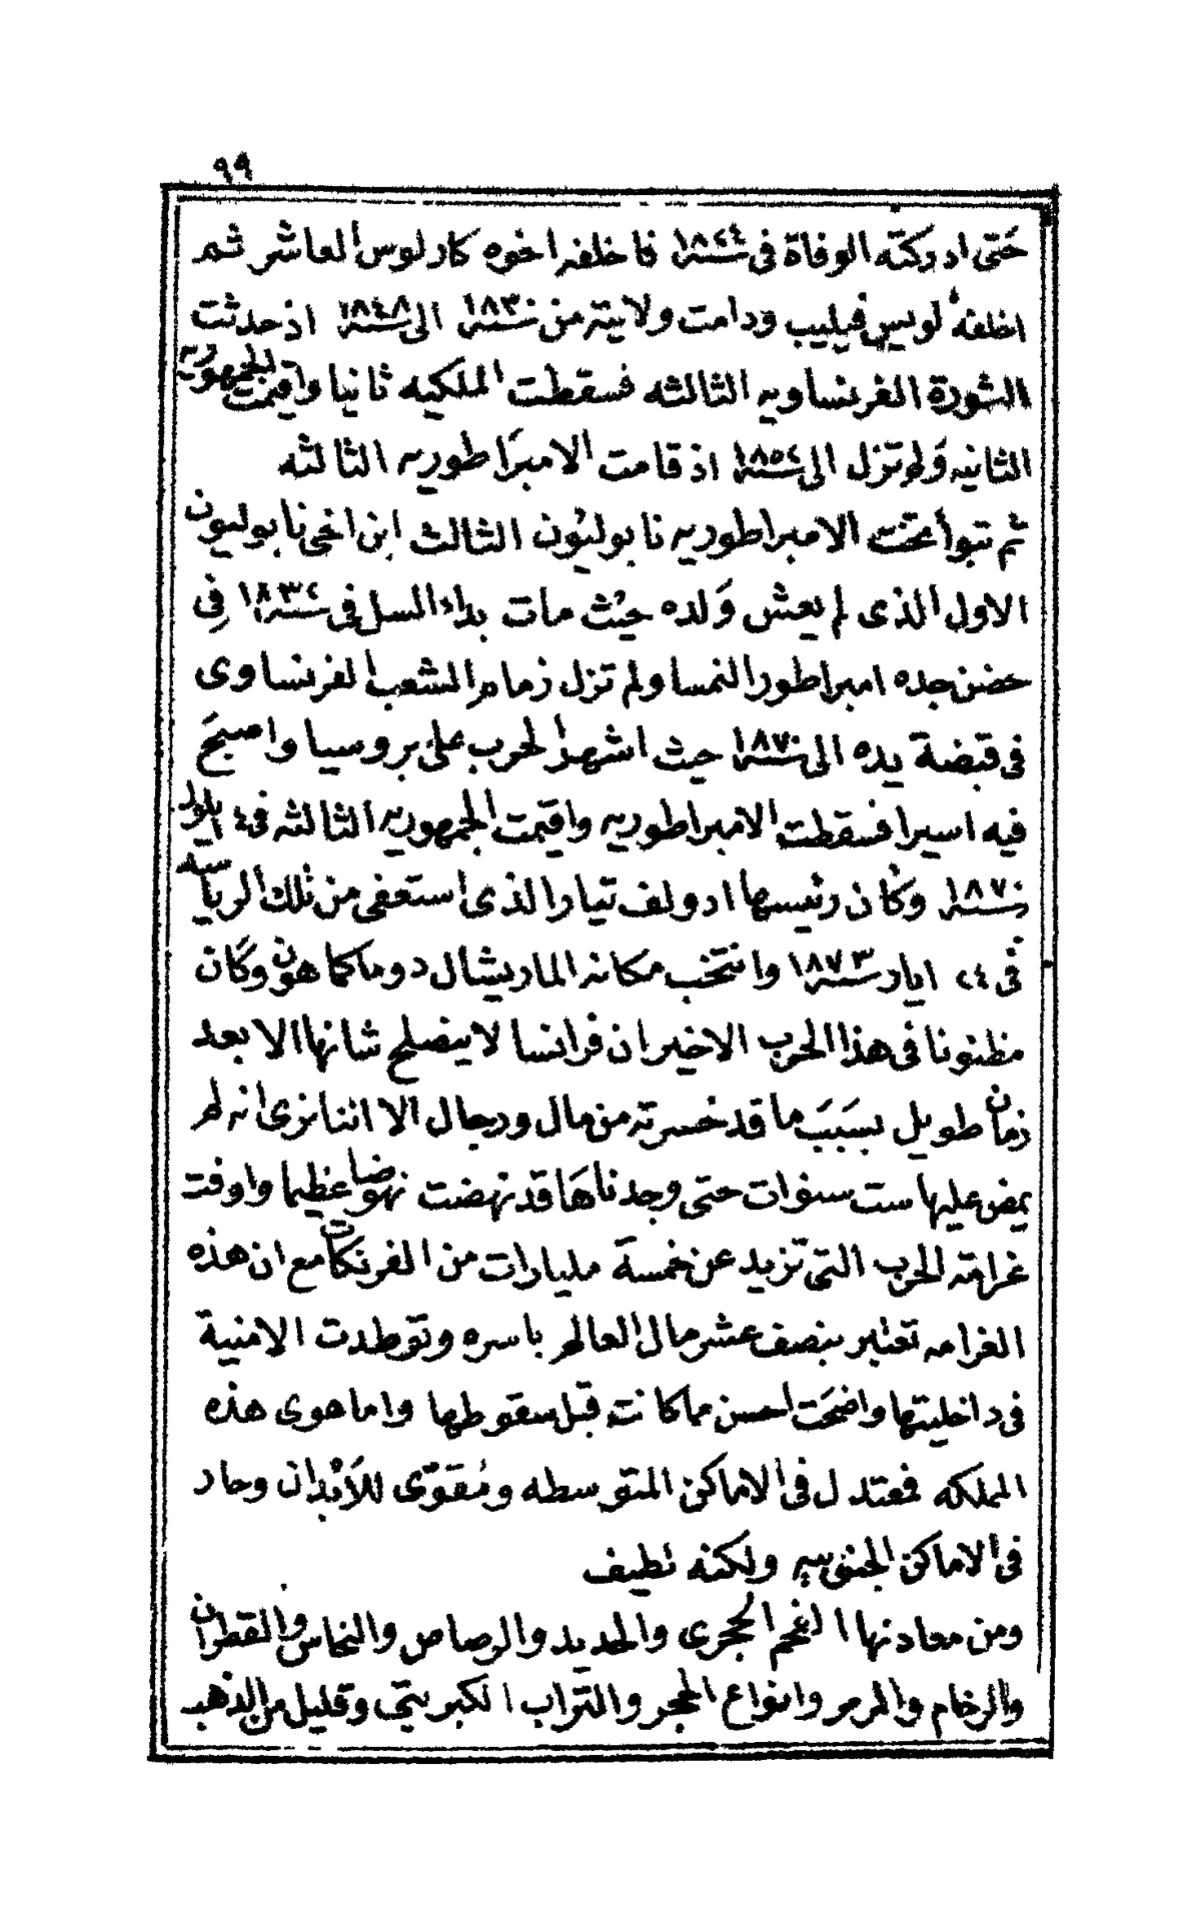 ٩٩
حتى ادركته الوفاة فى سنة ١٨٢٤ فاخلفه اخوه كارلوس العاشر ثم
اخلفه لويس فيليب ودامت ولايته من سنة ١٨٣٠ الى سنة ١٨٤٨ اذ حدثت
الثورة الفرنساويه الثالثه فسقطت الملكيه ثانيا واقيمت الجمهوريه
الثانيه ولم تزل الى سنة ١٨٥٢ اذ قامت الامبراطوريه الثالثه
ثم تبوأ تخت الامبراطوريه نابوليون الثالث ابن اخى نابوليون
الاول الذى لم يعش ولده حيث مات بداء السل فى سنة ١٨٣٢ فى
حضن جده امبراطور النمسا ولم تزل زمام الشعب الفرنساوى
فى قبضة يده الى سنة ١٨٧٠ حيث اشهر الحرب على بروسيا واصبح
فيه اسيرا فسقطت الامبراطوريه واقيمت الجمهوريه الثالثه فى ٤ ايلول
سنة ١٨٧٠ وكان رئيسها ادولف تيار الذى استعفى من تلك الرياسه
فى ٢٤ ايار سنة ١٨٧٣ وانتخب مكانه الماريشال دوماكماهون وكان
مظنونا فى هذا الحرب الاخير ان فرانسا لا ينصلح شانها الا بعد
زمان طويل بسبب ما قد خسرته من مال ورجال الا اننا نرى انه لم
يمض عليها ست سنوات حتى وجدناها قد نهضت نهوضا عظيما واوفت
غرامة الحرب التى تزيد عن خمسة مليارات من الفرنكات مع ان هذه
الغرامه تعتبر بنصف عشر مال العالم باسره وتوطدت الامنية
فى داخليتها واضحت احسن مما كانت قبل سقوطها واما هوى هذه
المملكه فمعتدل فى الاماكن المتوسطه ومقوى للابدان وحار
فى الاماكن الجنوبيه ولكنه لطيف
ومن معادنها الفحم الحجرى والحديد والرصاص والنحاس والقطران
والرخام والمرمر وانواع الحجر والتراب الكبريتى وقليل من الذهب